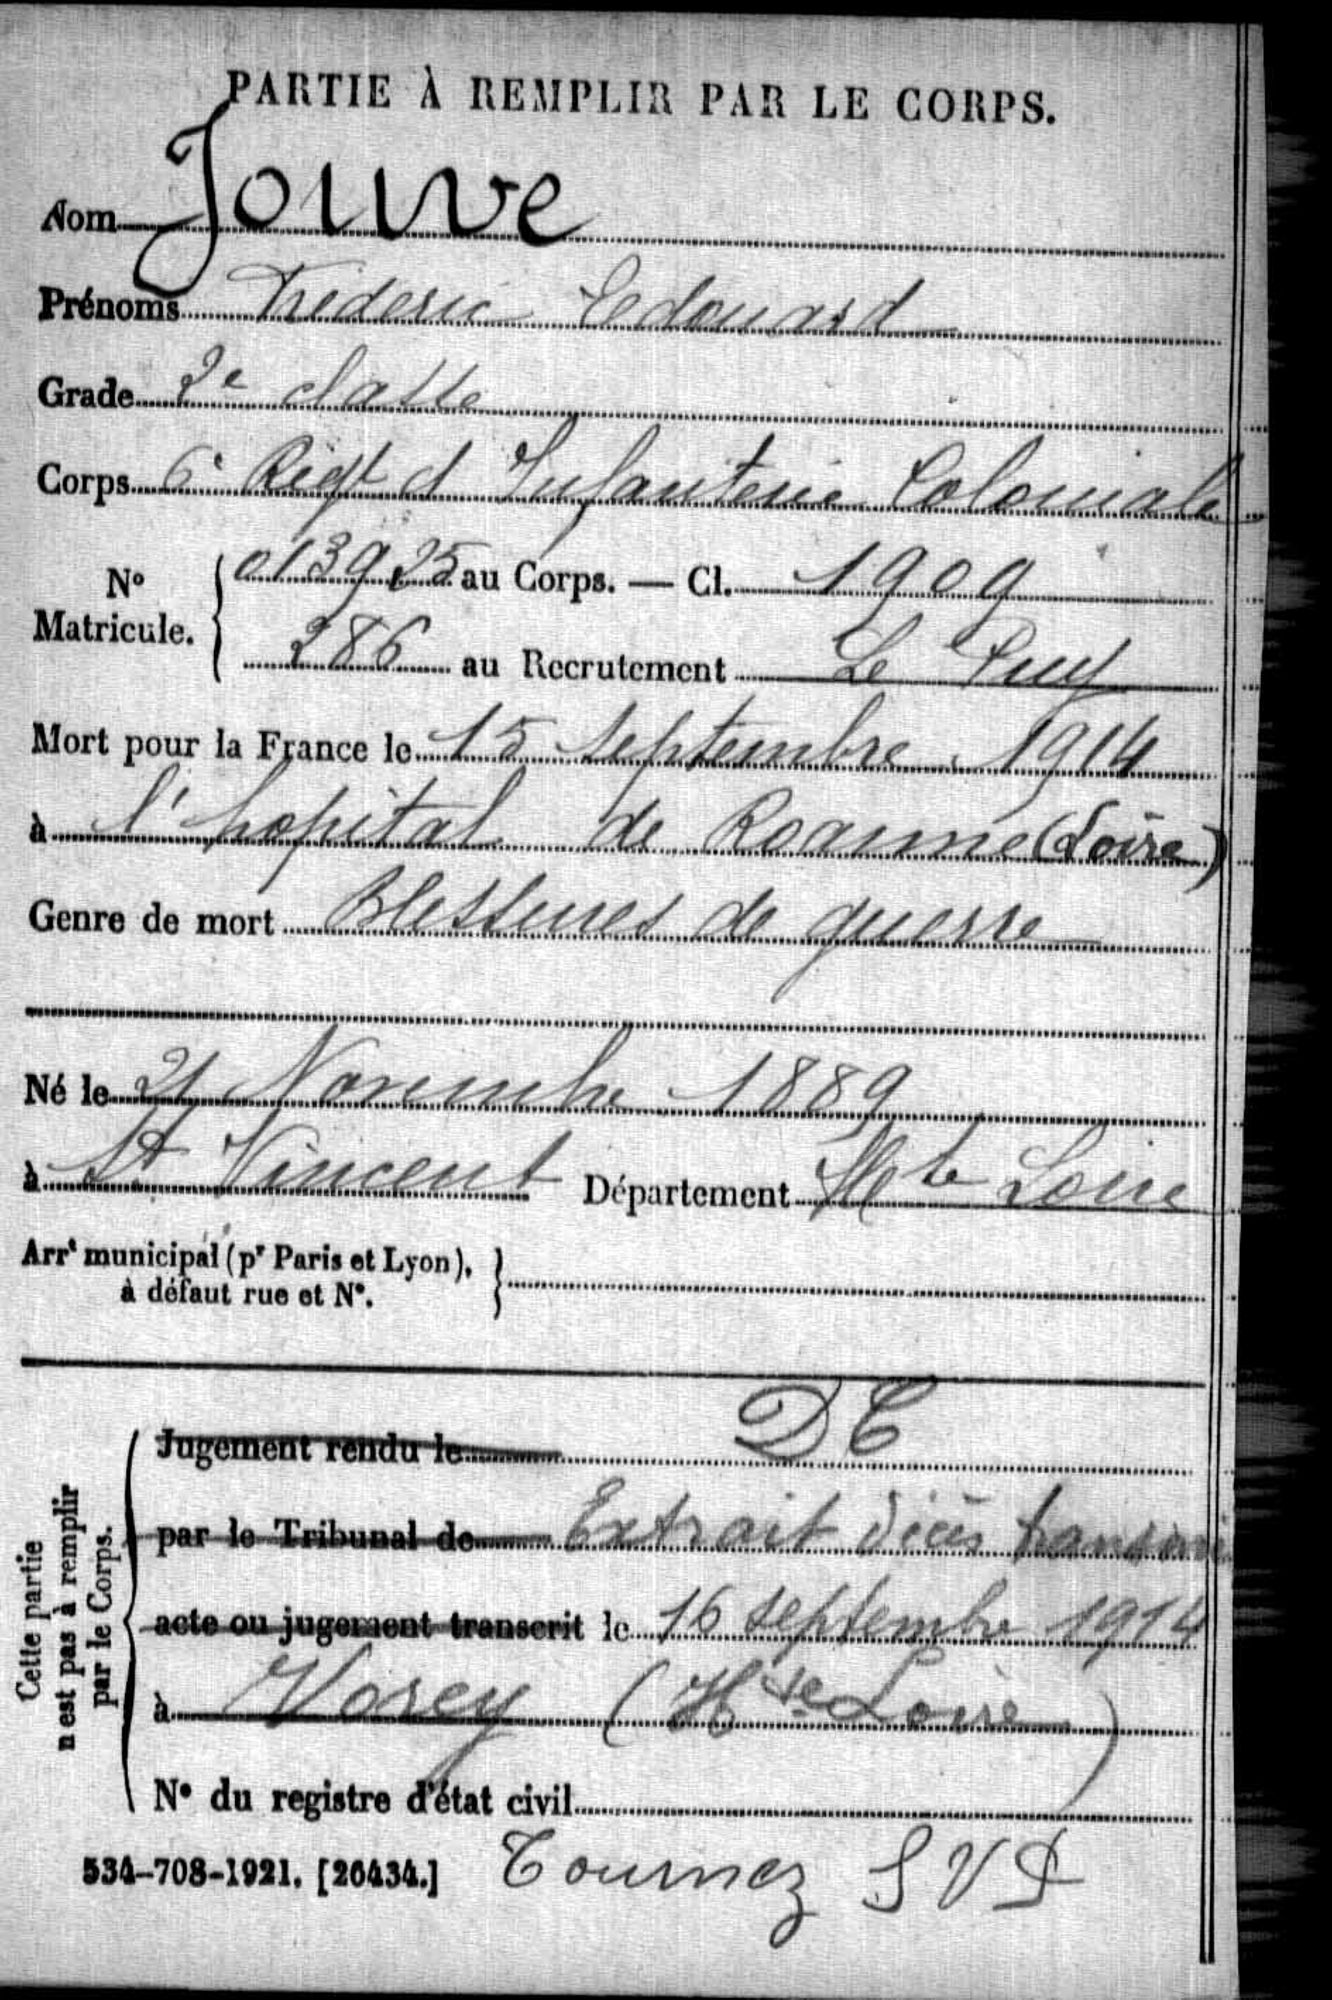 PARTIE À REMPLIR PAR LE CORPS.
Nom Jouve
Prénoms Frédéric Edouard
Grade 2e classe
Corps 6e Régt d Infanterie Coloniale
No Matricule. { 013925 au Corps. — Cl. 1909
286 au Recrutement Le Puy
Mort pour la France le 15 septembre 1914
à l'hopital de Roanne (Loire)
Genre de mort Blessures de guerre
Né le 21 Novembre 1889
à St Vincent Département Hte Loire
Arrt municipal (pr Paris et Lyon), }
à défaut rue et No.
Cette partie
n'est pas à remplir
par le Corps.
Jugement rendu le DC
par le Tribunal de Extrait décès transmis
acte ou jugement transcrit le 16 septembre 1914
à Vorey (Hte Loire)
No du registre d'état civil
534-708-1921. [26434.] Tournez SVP